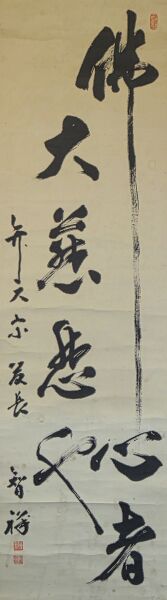 佛心者
大慈悲也
弁天宗長
智祥